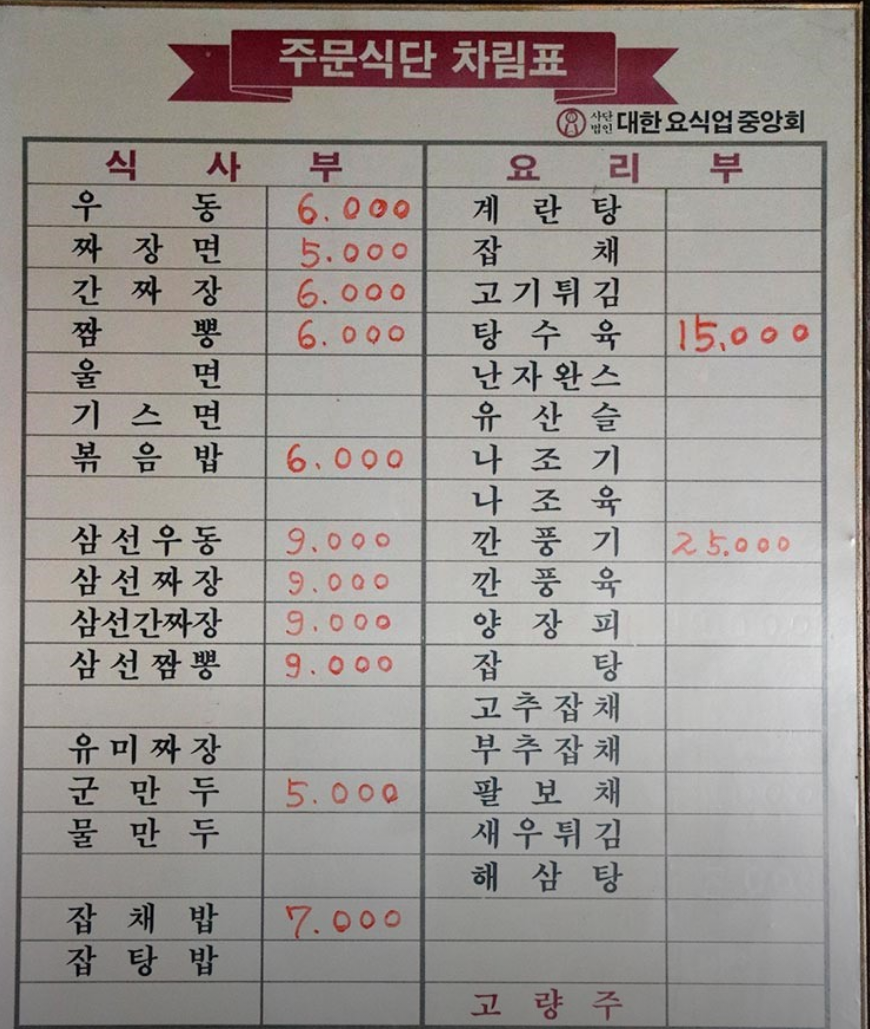 주문식단 차림표
사단법인 대한요식업중앙회
식사부
우동 6.000
짜장면 5.000
간짜장 6.000
짬뽕 6.000
울면
기스면
볶음밥 6.000
삼선우동 9.000
삼선짜장 9.000
삼선간짜장 9.000
삼선짬뽕 9.000
유미짜장
군만두 5.000
물만두
잡채밥 7.000
잡탕밥
요리부
계란탕
잡채
고기튀김
탕수육 15.000
난자완스
유산슬
나조기
나조육
깐풍기 25.000
깐풍육
양장피
잡탕
고추잡채
부추잡채
팔보채
새우튀김
해삼탕
고량주